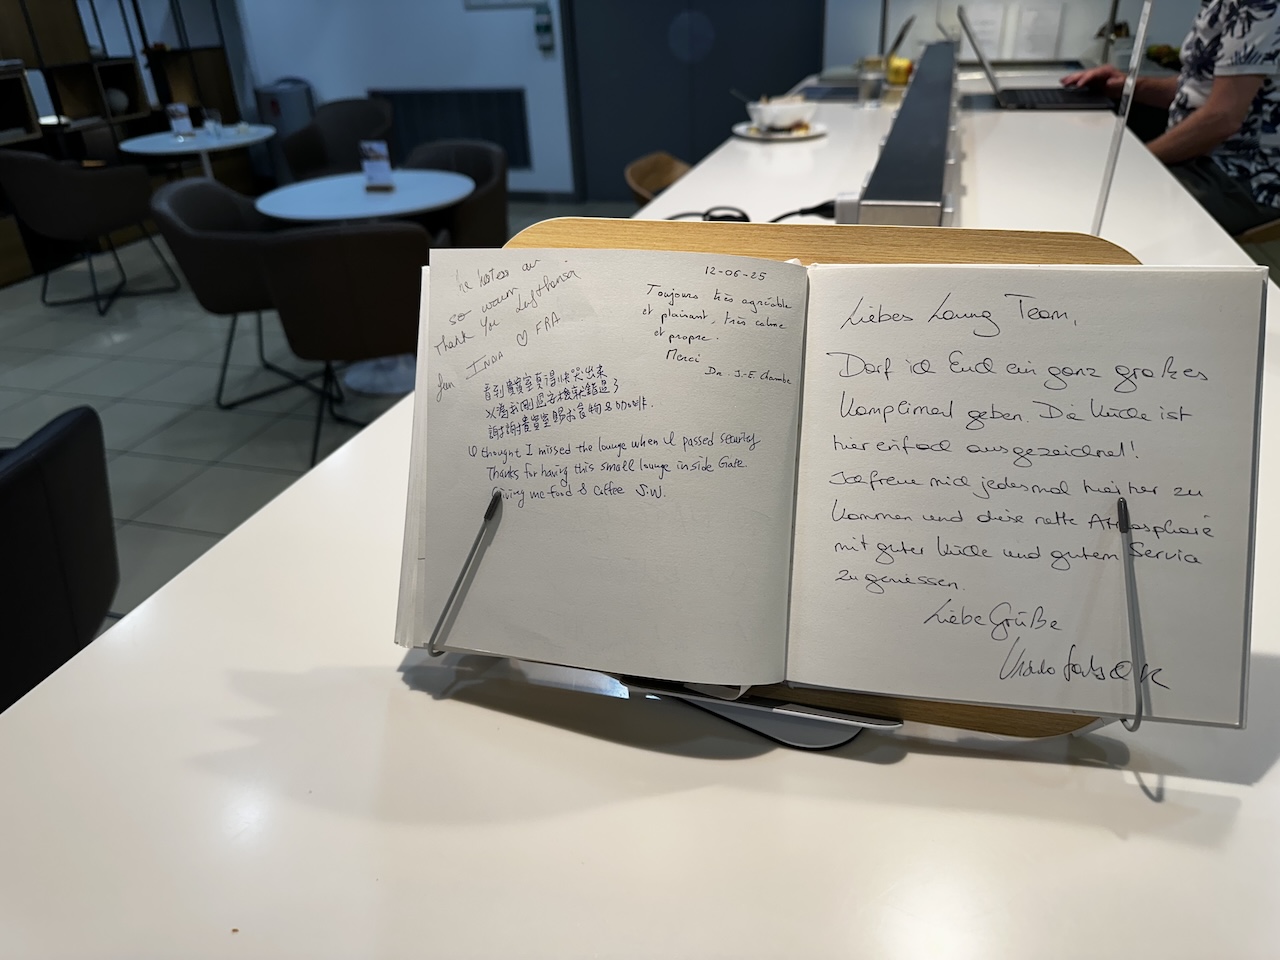 The hotess are
so warm
Thank You Lufthansa
INDIA ♡ FRA
12-06-25
Toujours très agréable
et plaisant, très calme
et propre.
Merci
Dr. J.-E.
看到貴賓室真得快哭出來
以為我剛過安機就錯過了
謝謝貴賓室賜我食物&咖啡.
I thought I missed the lounge when I passed security
Thanks for having this small lounge inside Gate.
Giving me food & coffee S.W.
Liebes Loung Team,
Darf ich Euch ein ganz großes
Kompliment geben. Die Küche ist
hier einfach ausgezeichnet!
Ich freue mich jedesmal hier her zu
kommen und diese nette Atmosphäre
mit guter Küche und gutem Service
zu geniessen.
Liebe Grüße